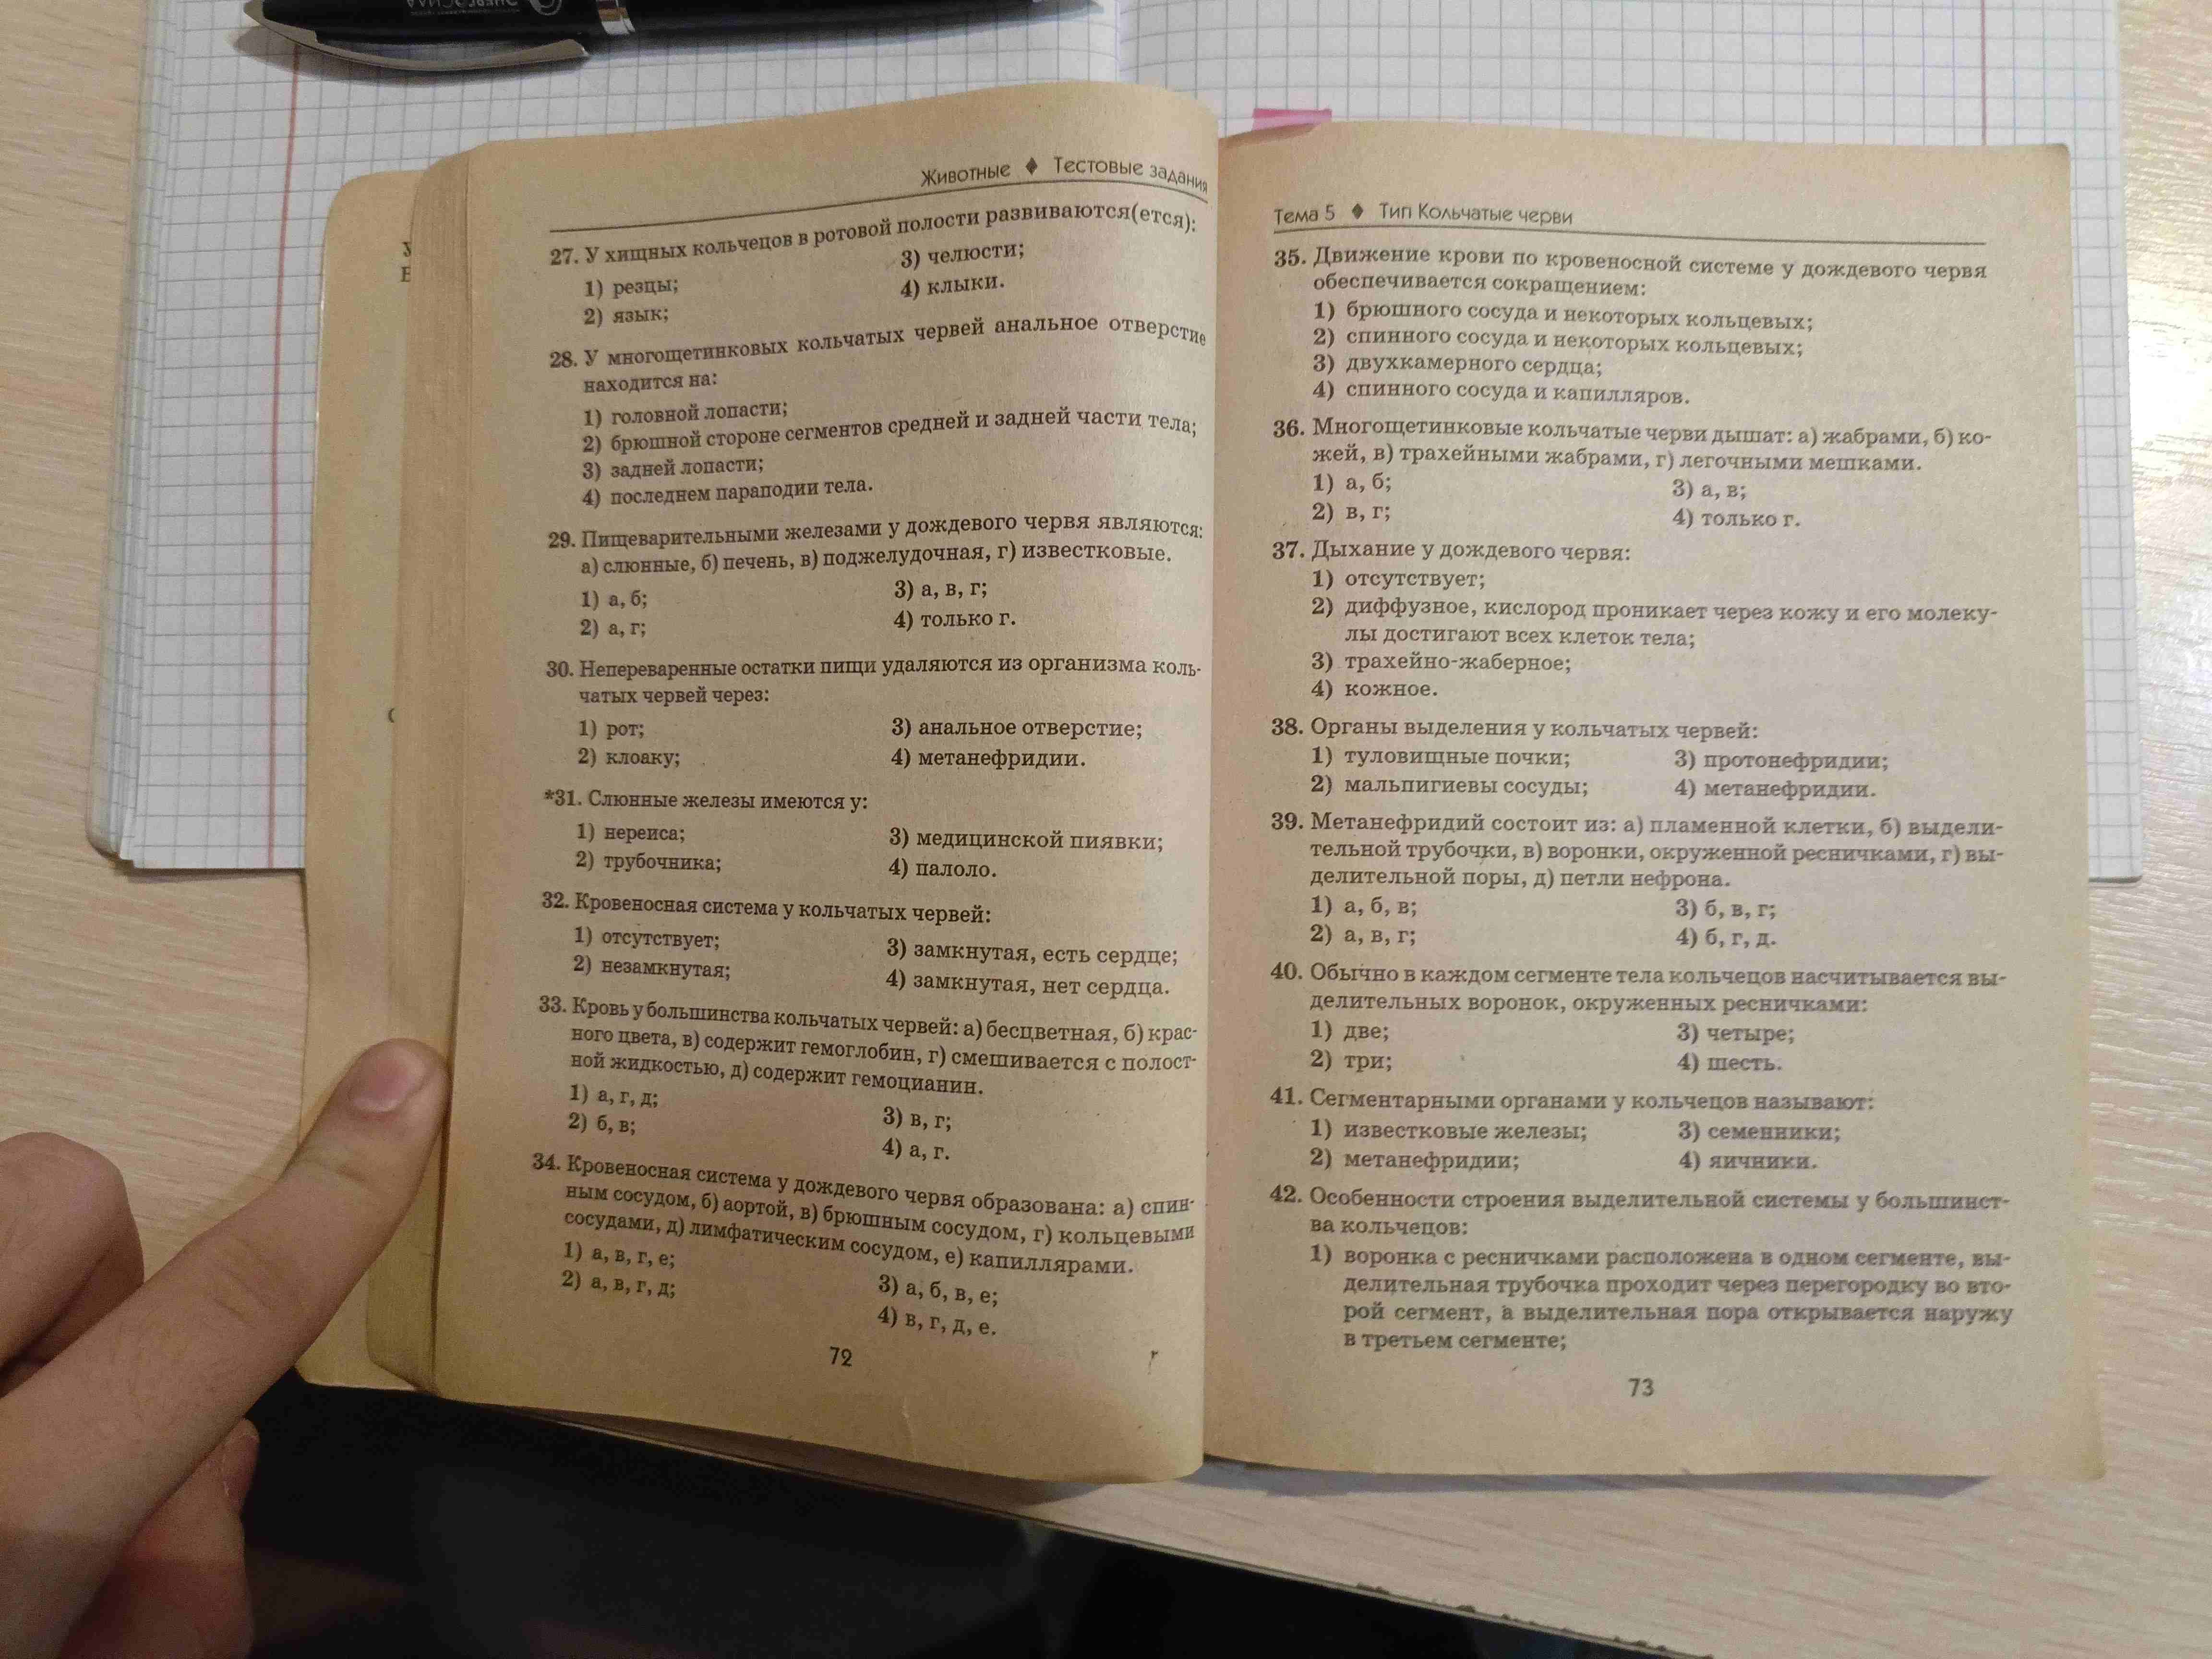 Животные ♦ Тестовые задания
27. У хищных кольчецов в ротовой полости развиваются(ется):
1) резцы;
2) язык;
3) челюсти;
4) клыки.
28. У многощетинковых кольчатых червей анальное отверстие
находится на:
1) головной лопасти;
2) брюшной стороне сегментов средней и задней части тела;
3) задней лопасти;
4) последнем параподии тела.
29. Пищеварительными железами у дождевого червя являются:
а) слюнные, б) печень, в) поджелудочная, г) известковые.
1) а, б;
2) а, г;
3) а, в, г;
4) только г.
30. Непереваренные остатки пищи удаляются из организма коль-
чатых червей через:
1) рот;
2) клоаку;
3) анальное отверстие;
4) метанефридии.
*31. Слюнные железы имеются у:
1) нереиса;
2) трубочника;
3) медицинской пиявки;
4) палоло.
32. Кровеносная система у кольчатых червей:
1) отсутствует;
2) незамкнутая;
3) замкнутая, есть сердце;
4) замкнутая, нет сердца.
33. Кровь у большинства кольчатых червей: а) бесцветная, б) крас-
ного цвета, в) содержит гемоглобин, г) смешивается с полост-
ной жидкостью, д) содержит гемоцианин.
1) а, г, д;
2) б, в;
3) в, г;
4) а, г.
34. Кровеносная система у дождевого червя образована: а) спин-
ным сосудом, б) аортой, в) брюшным сосудом, г) кольцевыми
сосудами, д) лимфатическим сосудом, е) капиллярами.
1) а, в, г, е;
2) а, в, г, д;
3) а, б, в, е;
4) в, г, д, е.
72
Тема 5 ♦ Тип Кольчатые черви
35. Движение крови по кровеносной системе у дождевого червя
обеспечивается сокращением:
1) брюшного сосуда и некоторых кольцевых;
2) спинного сосуда и некоторых кольцевых;
3) двухкамерного сердца;
4) спинного сосуда и капилляров.
36. Многощетинковые кольчатые черви дышат: а) жабрами, б) ко-
жей, в) трахейными жабрами, г) легочными мешками.
1) а, б;
2) в, г;
3) а, в;
4) только г.
37. Дыхание у дождевого червя:
1) отсутствует;
2) диффузное, кислород проникает через кожу и его молеку-
лы достигают всех клеток тела;
3) трахейно-жаберное;
4) кожное.
38. Органы выделения у кольчатых червей:
1) туловищные почки;
2) мальпигиевы сосуды;
3) протонефридии;
4) метанефридии.
39. Метанефридий состоит из: а) пламенной клетки, б) выдели-
тельной трубочки, в) воронки, окруженной ресничками, г) вы-
делительной поры, д) петли нефрона.
1) а, б, в;
2) а, в, г;
3) б, в, г;
4) б, г, д.
40. Обычно в каждом сегменте тела кольчецов насчитывается вы-
делительных воронок, окруженных ресничками:
1) две;
2) три;
3) четыре;
4) шесть.
41. Сегментарными органами у кольчецов называют:
1) известковые железы;
2) метанефридии;
3) семенники;
4) яичники.
42. Особенности строения выделительной системы у большинст-
ва кольчецов:
1) воронка с ресничками расположена в одном сегменте, вы-
делительная трубочка проходит через перегородку во вто-
рой сегмент, а выделительная пора открывается наружу
в третьем сегменте;
73